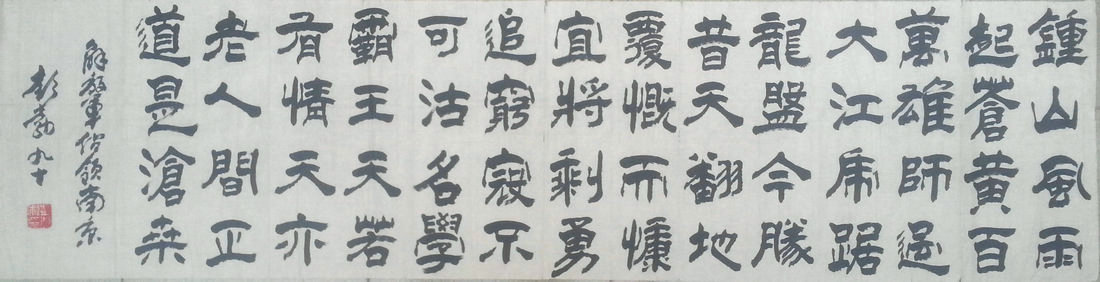 鍾山風雨
起蒼黃百
萬雄師過
大江虎踞
龍盤今勝
昔天翻地
覆慨而慷
宜將剩勇
追窮寇不
可沽名學
霸王天若
有情天亦
老人間正
道是滄桑
解放軍佔領南京
彭勃九十